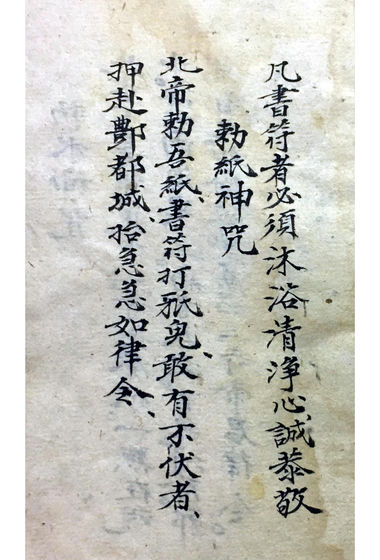 凡書符者必須沐浴清淨心、誠恭敬
勅紙神咒
北帝勅吾紙、書符打邪鬼、敢有不伏者、
押赴酆都城、抬急急如律令、